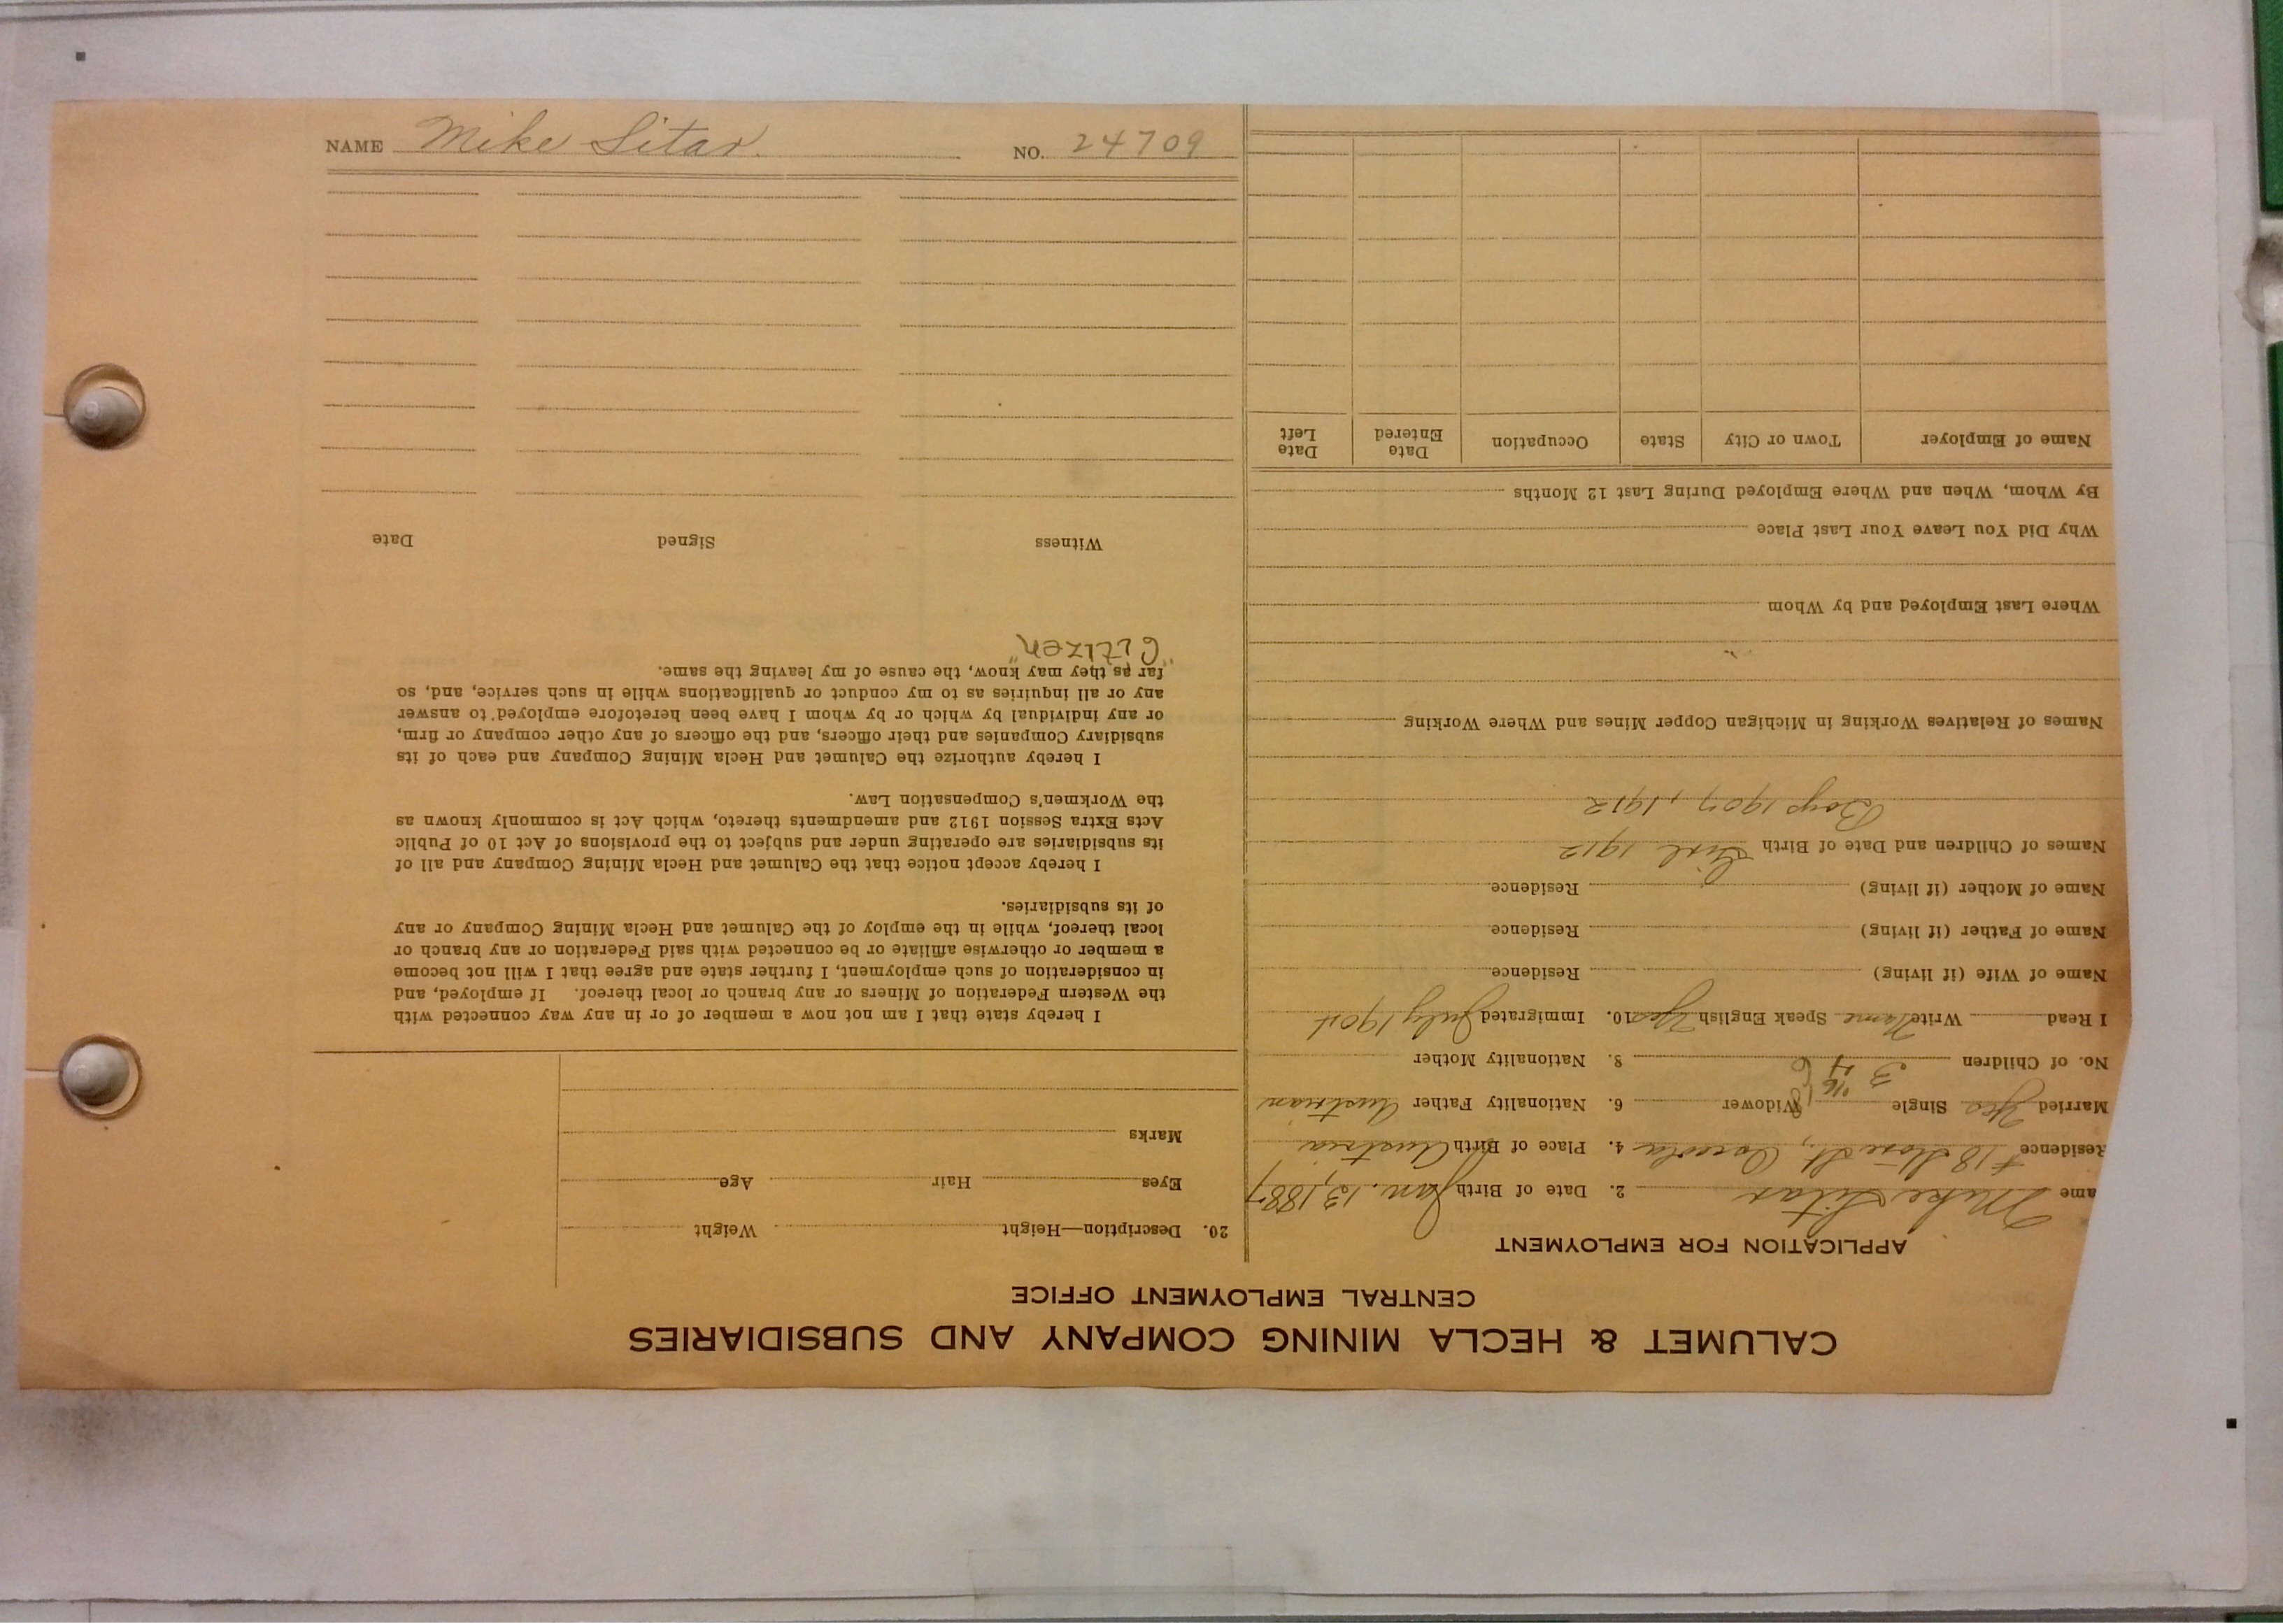 NAME Mike Sitar. NO. 24709
CALUMET & HECLA MINING COMPANY AND SUBSIDIARIES
CENTRAL EMPLOYMENT OFFICE
APPLICATION FOR EMPLOYMENT
ame Mike Sitar 2. Date of Birth Jan. 13, 1887
Residence # 18 St., Osceola 4. Place of Birth Austria
Married Yes Single Widower 6. Nationality Father Austrian
No. of Children 3 4 6 8. Nationality Mother
I Read Write Name Speak English Yes 10. Immigrated July 1904
Name of Wife (if living) Residence
Name of Father (if living) Residence
Name of Mother (if living) Residence
Names of Children and Date of Birth Girl 1912
Boys 1907, 1912
Names of Relatives Working in Michigan Copper Mines and Where Working
Where Last Employed and by Whom
Why Did You Leave Your Last Place
By Whom, When and Where Employed During Last 12 Months
Name of Employer Town or City State Occupation Date Entered Date Left
20. Description—Height Weight
Eyes Hair Age
Marks
I hereby state that I am not now a member of or in any way connected with
the Western Federation of Miners or any branch or local thereof. If employed, and
in consideration of such employment, I further state and agree that I will not become
a member or otherwise affiliate or be connected with said Federation or any branch or
local thereof, while in the employ of the Calumet and Hecla Mining Company or any
of its subsidiaries.
I hereby accept notice that the Calumet and Hecla Mining Company and all of
its subsidiaries are operating under and subject to the provisions of Act 10 of Public
Acts Extra Session 1912 and amendments thereto, which Act is commonly known as
the Workmen's Compensation Law.
I hereby authorize the Calumet and Hecla Mining Company and each of its
subsidiary Companies and their officers, and the officers of any other company or firm,
or any individual by which or by whom I have been heretofore employed to answer
any or all inquiries as to my conduct or qualifications while in such service, and, so
far as they may know, the cause of my leaving the same.
"Citizen"
Witness Signed Date